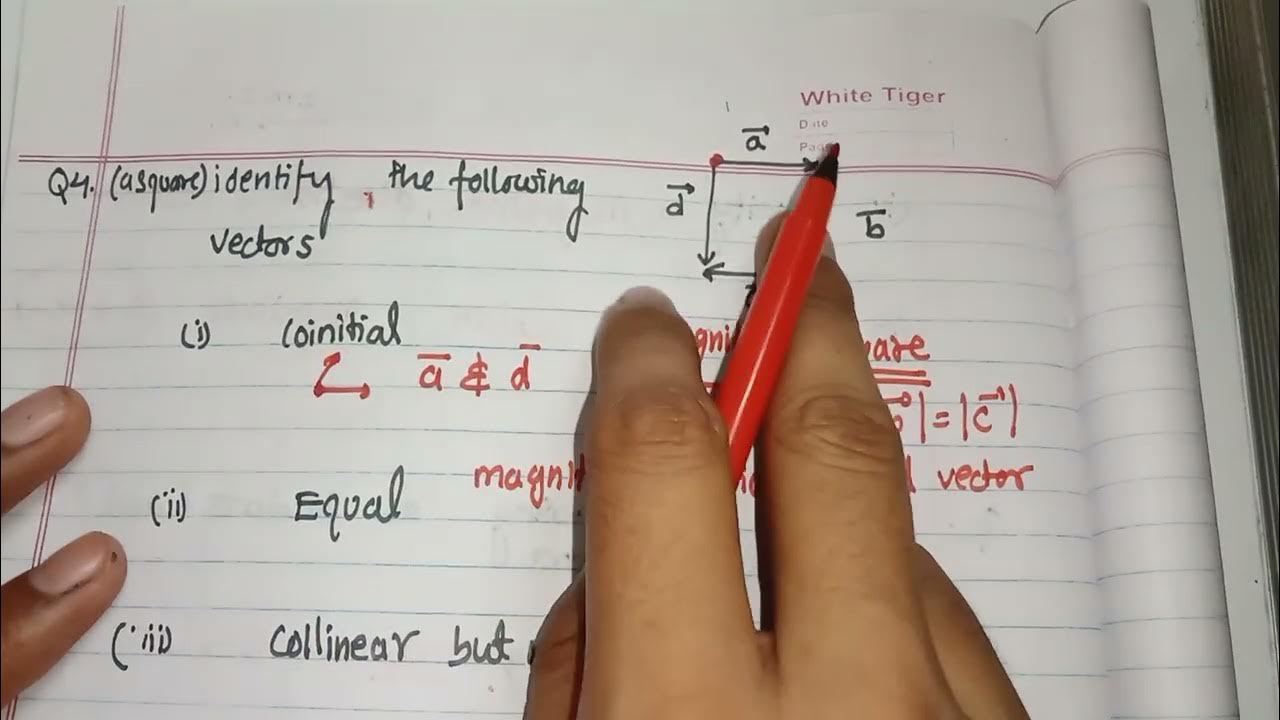 White Tiger
Date
a
Q4. (a square) identify, the following
d
b
vectors
(i) Coinitial
a & d
|=|c|
(ii) Equal
vector
(iii) Collinear but